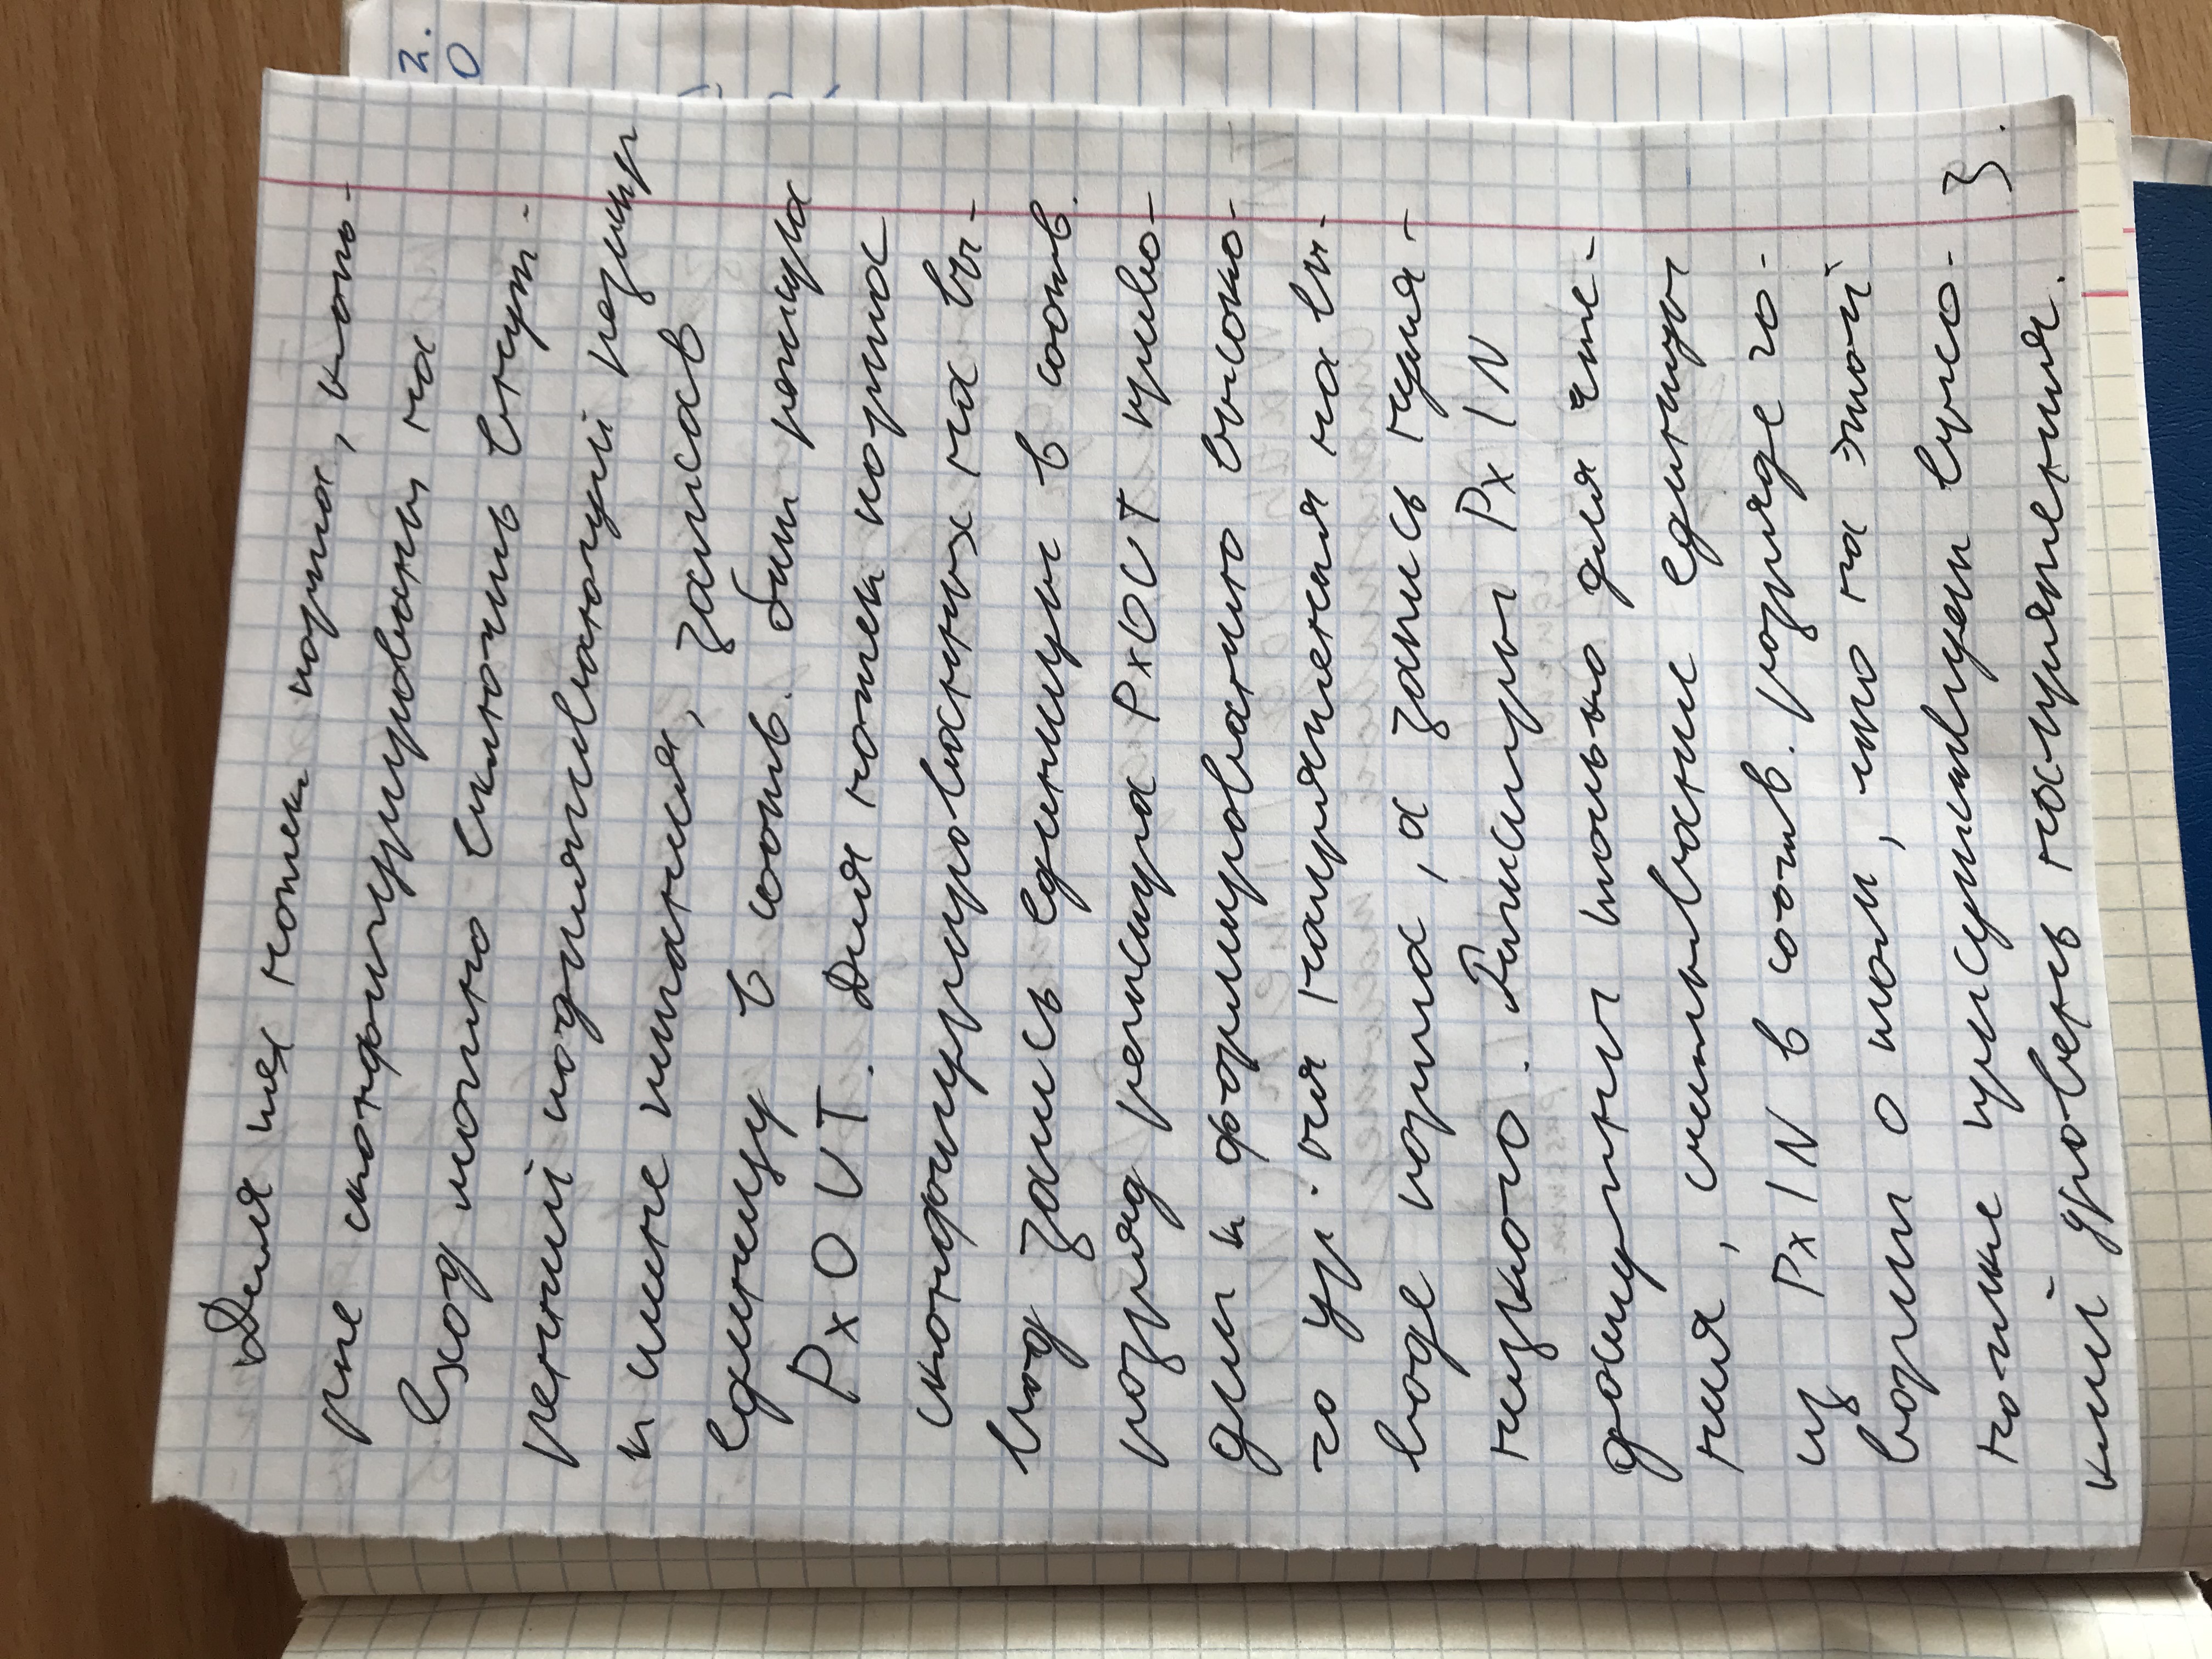 Для тех ножек порта, кото-
рые сконфигурированы на
вход можно включить внут-
ренний подтягивающий резистр
к шине питания, записав
единицу в соотв. бит регистра
PxOUT. Для ножек порта
сконфигурированных на вы-
вод запись единицы в соотв.
разряд регистра PxOUT приво-
дит к формированию высоко-
го ур-ня напряжения на вы-
воде порта, а запись нуля -
низкого. Регистры PxIN
доступны только для чте-
ния, считывание единицы
из PxIN в соотв. разряде го-
ворит о том, что на этой
ножке присутствует высо-
кий уровень напряжения.
3.
2.
0